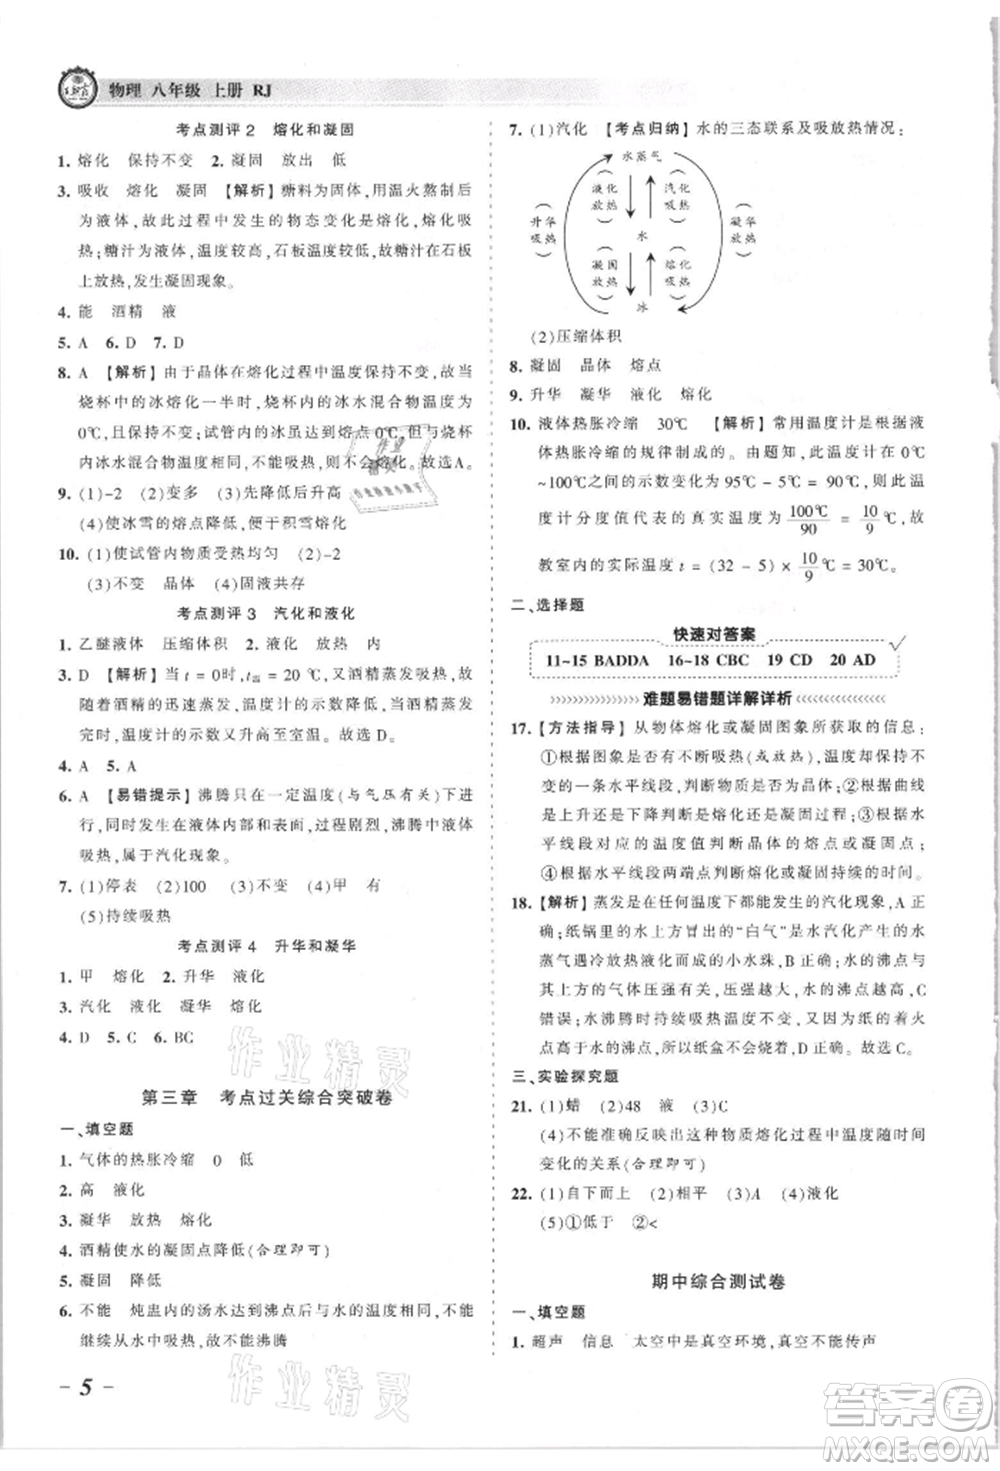 王朝霞
物理 八年级 上册 RJ
考点测评2 熔化和凝固
1. 熔化 保持不变 2. 凝固 放出 低
3. 吸收 熔化 凝固 【解析】糖料为固体,用温火熬制后
为液体,故此过程中发生的物态变化是熔化,熔化吸
热;糖汁为液体,温度较高,石板温度较低,故在石板
上放热,发生凝固现象。
4. 能 酒精 液
5. A 6. D 7. D
8. A 【解析】由于晶体在熔化过程中温度保持不变,故当
烧杯中的冰熔化一半时,烧杯内的冰水混合物温度为
0℃;试管内的冰虽达到熔点0℃,但与烧杯
内冰水混合物温度相同,不能吸热,不能熔化。故选A。
9. (1)-2 (2)变多 (3)先降低后升高
(4)使冰雪的熔点降低,便于积雪熔化
10. (1)使试管内物质受热均匀 (2)-2
(3)不变 晶体 (4)固液共存
考点测评3 汽化和液化
1. 乙醚液体 压缩体积 2. 液化 放热 内
3. D 【解析】当 t=0时,t室=t酒精,又酒精蒸发吸热,故随
着酒精的迅速蒸发,温度计的示数降低,当酒精蒸发
完时,温度计的示数又升高直至室温,故选D。
4. A 5. A
6. A 【易错提示】沸腾只在一定温度(与气压有关)下进
行,同时发生在液体内部和表面,过程剧烈,沸腾过程
吸热,属于汽化现象。
7. (1)停表 (2)100 (3)不变 (4)甲 有
(5)持续吸热
考点测评4 升华和凝华
1. 甲 熔化 2. 升华 液化
3. 汽化 液化 凝华 熔化
4. D 5. C 6. BC
第三章 考点过关综合突破卷
一、填空题
1. 气体的热胀冷缩 0 低
2. 高 液化
3. 凝华 放热 熔化
4. 酒精使水的凝固点降低(合理即可)
5. 凝固 降低
6. 不能 炖盅内的汤水达到沸点后与水的温度相同,不能
继续从水中吸热,故不能沸腾
- 5 -
7. (1)汽化 【考点归纳】水的三态联系及吸放热情况:
水蒸气
液化 放热
汽化 吸热
升华 吸热
凝华 放热
水
凝固 放热
熔化 吸热
冰
(2)压缩体积
8. 凝固 晶体 熔点
9. 升华 凝华 液化 熔化
10. 液体热胀冷缩 30℃ 【解析】常用温度计是根据液
体热胀冷缩的规律制成的。由题知,此温度计在0℃
~100℃之间的示数变化为95℃-5℃=90℃,则此温
度计分度值代表的真实温度为 100℃/90 = 10/9 ℃,故
教室内的实际温度 t=(32-5)× 10/9 ℃=30℃。
二、选择题
快速对答案
11~15 BADDA 16~18 CBC 19 CD 20 AD
难题易错题详解详析
17. 【方法指导】从物体熔化或凝固图象所获取的信息:
①根据图象是否有不断吸热(或放热),温度保持不
变的一条水平线段,判断物质是否为晶体;②根据曲线
是上升或下降判断是熔化还是凝固过程;③根据水
平线段对应的温度值判断晶体的熔点或凝固点;
④根据水平线段两端点判断熔化或凝固持续的时间。
18. 【解析】蒸发是在任何温度下都能发生的汽化现象,A正
确;纸锅里的水上方冒出的“白气”是水汽化产生的水
蒸气遇冷放热液化而成的小水珠,B正确;水的沸点与
水上方的气体压强有关,压强越大,水的沸点越高,C
错误;水沸腾时持续吸热温度不变,由于纸的着火
点高于水的沸点,所以纸盒不会烧着,D正确。故选C。
三、实验探究题
21. (1)蜡 (2)48 液 (3)不变
(4)不能准确反映出这种物质熔化过程中温度随时间
变化的关系(合理即可)
22. (1)自下而上 (2)相平 (3)A (4)液化
(5)①低于 ②<
期中综合测试卷
一、填空题
1. 超声 信息 太空中是真空环境,真空不能传声
作业精灵
作业精灵
答案卷
MXQE.COM